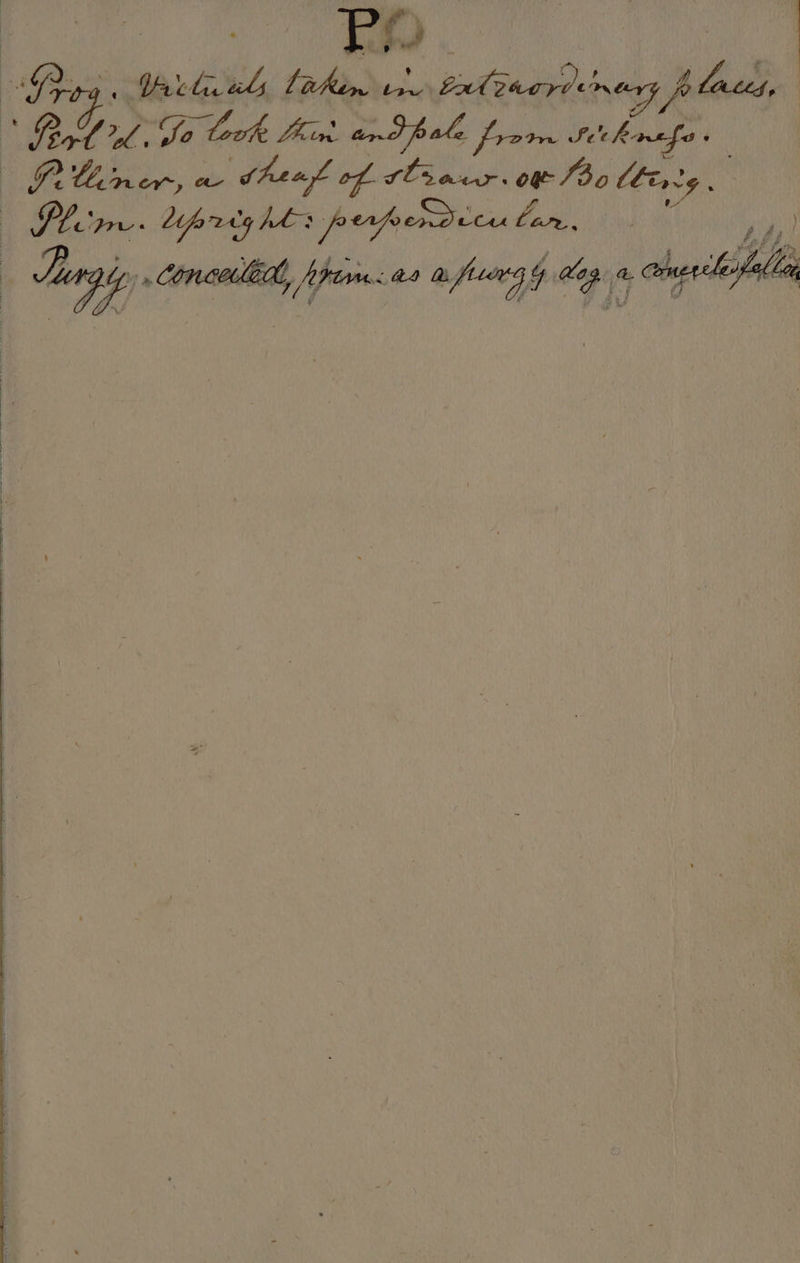 PO
Prog. Victuals taken in Extraordinary places,
To look thin and pale from Sickness.
a sheaf of straw. or Bolting.
Plim. Upright: perpendicular.
Purgy, Conceited, prim: as a purgy dog. a fellow